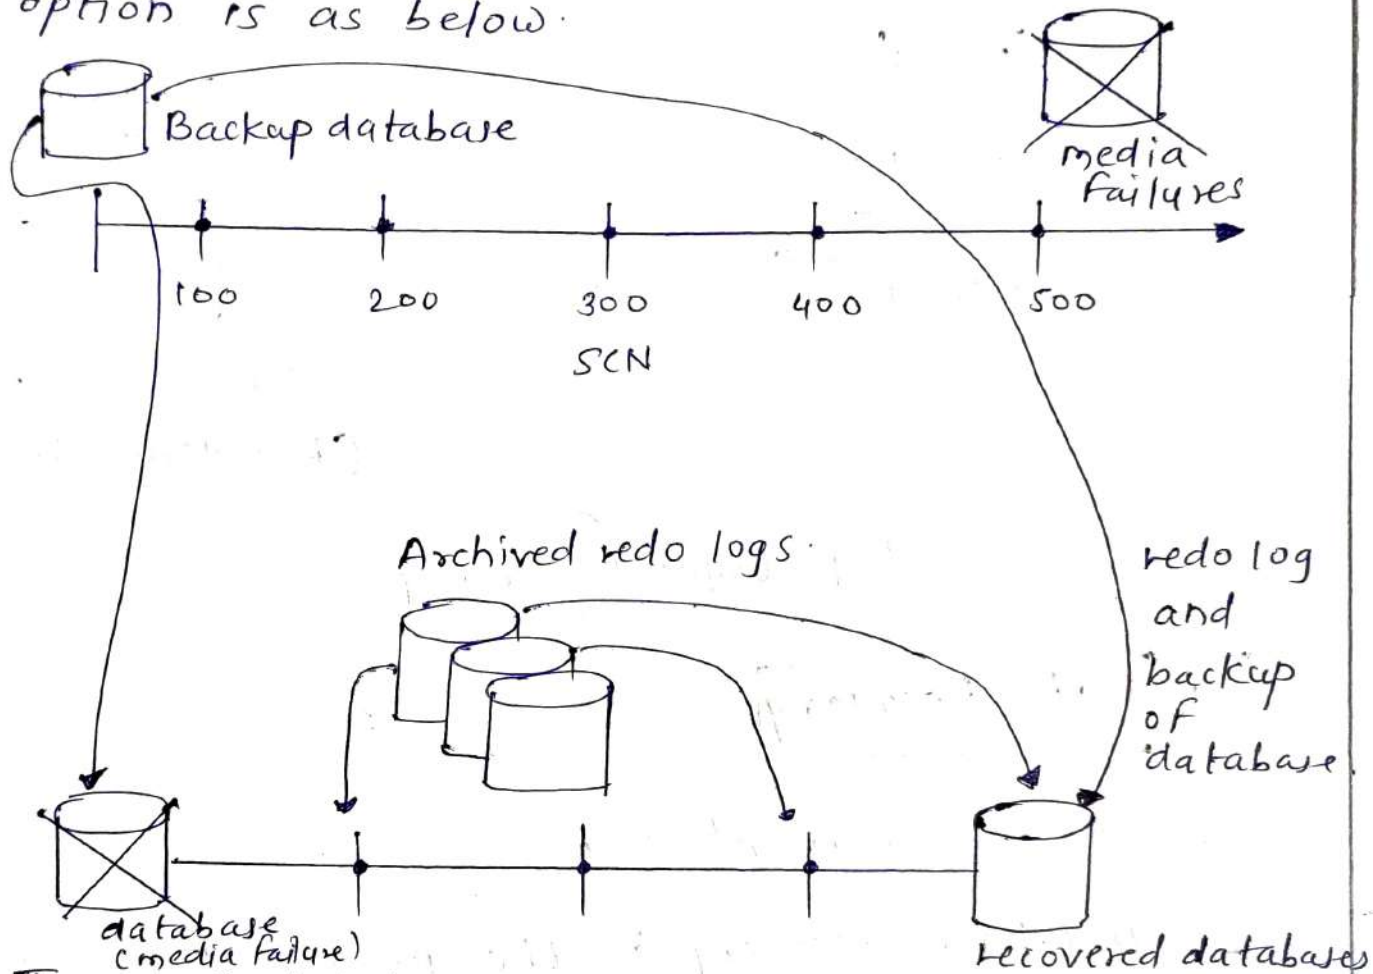 option is as below.
Backup database
media
failures
100 200 300 400 500
SCN
Archived redo logs.
redo log
and
backup
of
database.
database
(media failure)
recovered databases